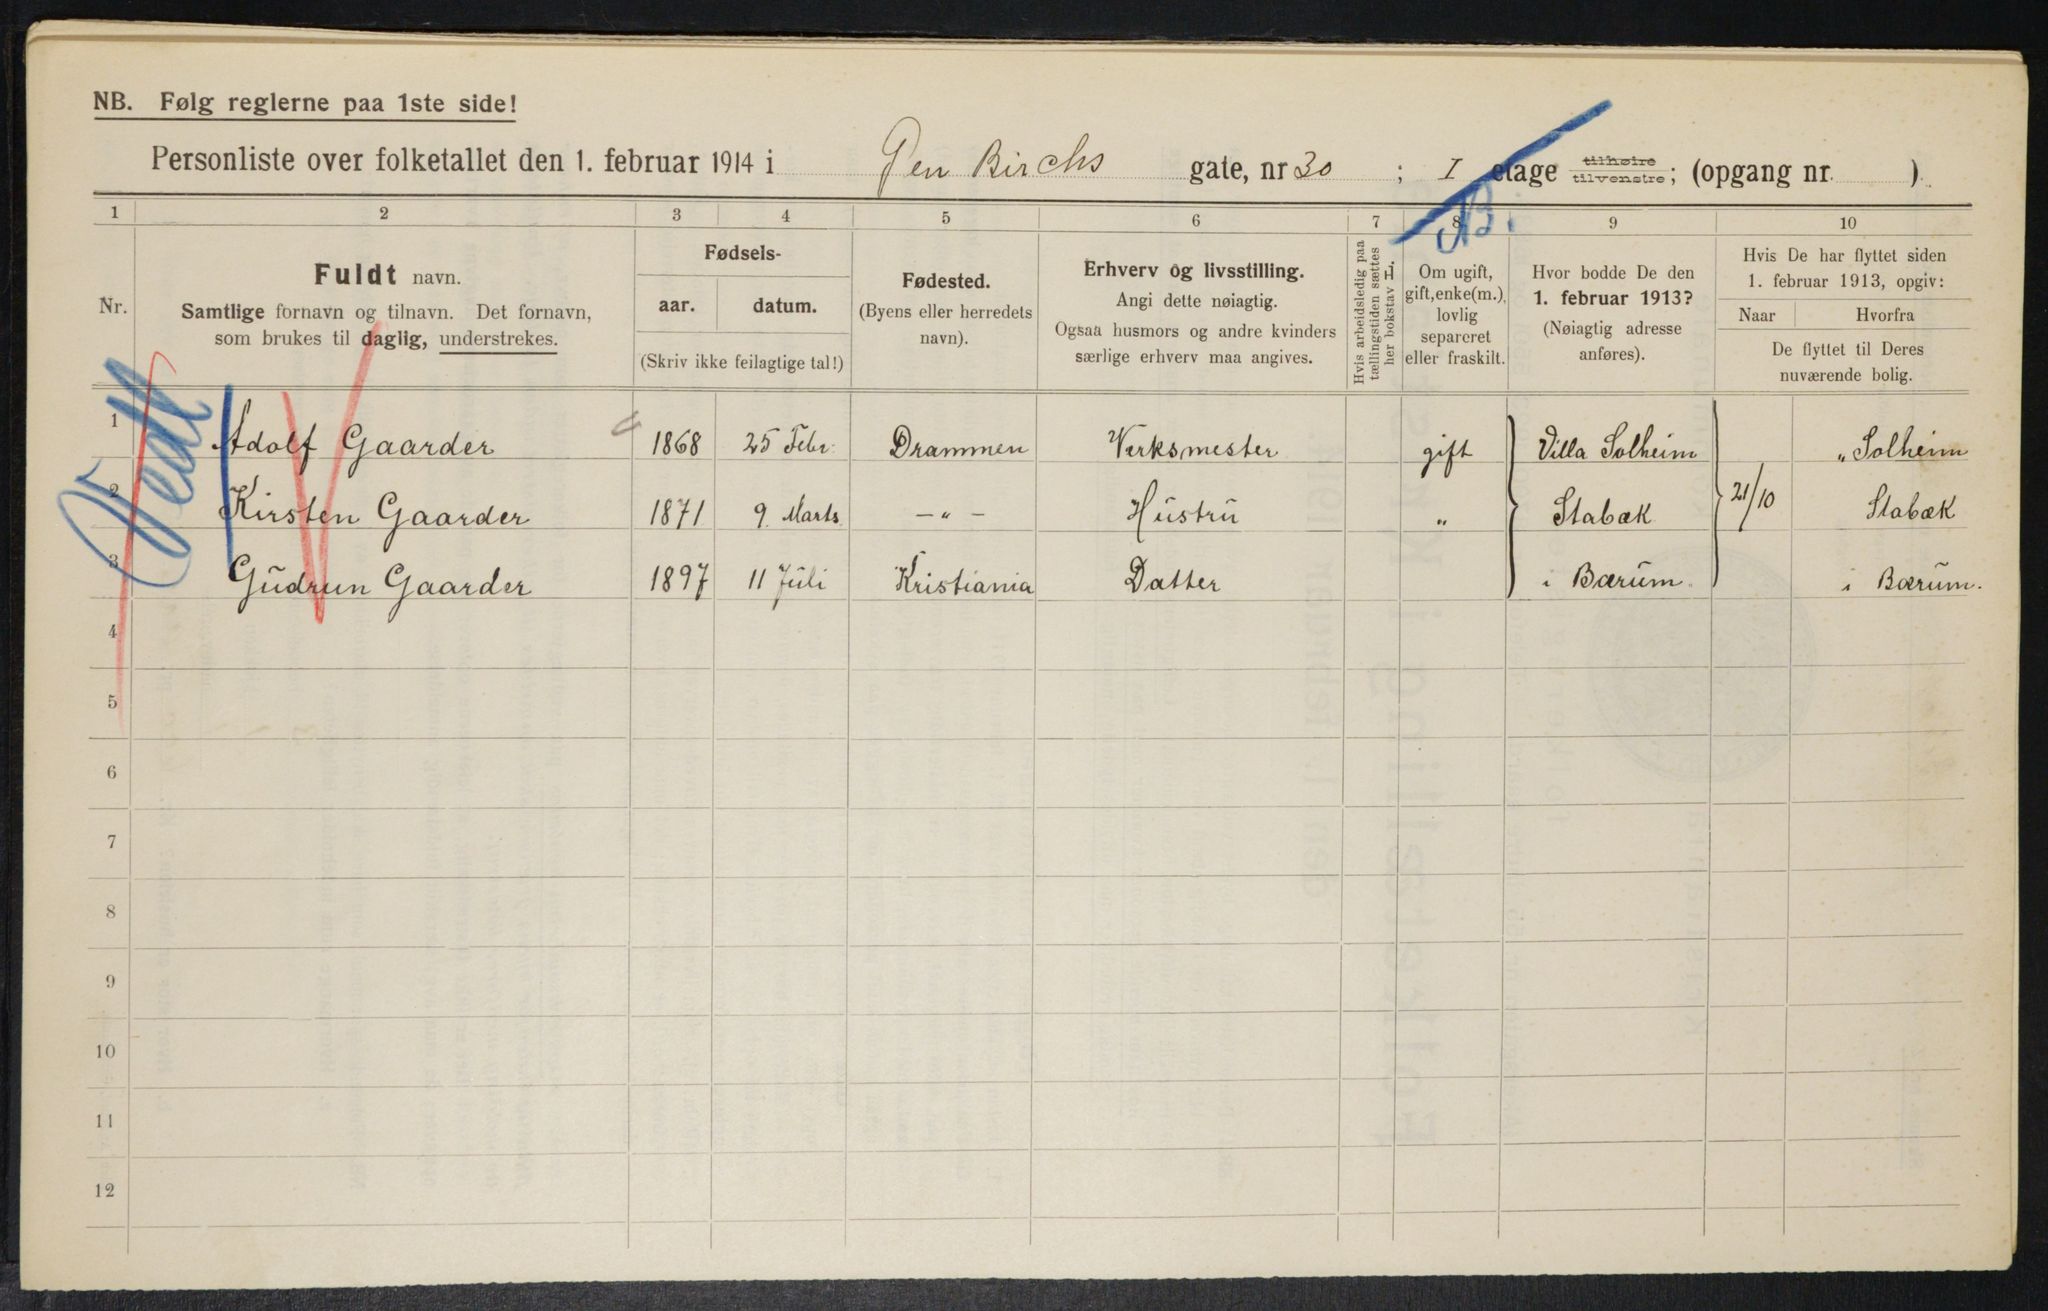 NB. Følg reglerne paa 1ste side!
Personliste over folketallet den 1. februar 1914 i Gen Birchs gate, nr 30 ; I etage tilhøire tilvenstre; (opgang nr. ).
B.
1 2 3 4 5 6 7 8 9 10
Nr.
Fuldt navn.
Samtlige fornavn og tilnavn. Det fornavn,
som brukes til daglig, understrekes.
Fødsels-
aar. datum.
(Skriv ikke feilagtige tal!)
Fødested.
(Byens eller herredets
navn).
Erhverv og livsstilling.
Angi dette nøiagtig.
Ogsaa husmors og andre kvinders
særlige erhverv maa angives.
Hvis arbeidsledig paa
tællingstiden sættes
her bokstav L.
Om ugift,
gift, enke(m.),
lovlig
separeret
eller fraskilt.
Hvor bodde De den
1. februar 1913?
(Nøiagtig adresse
anføres).
Hvis De har flyttet siden
1. februar 1913, opgiv:
Naar Hvorfra
De flyttet til Deres
nuværende bolig.
Vedl
1 Adolf Gaarder 1868 25 Febr. Drammen Verksmester gift Villa Solheim „Solheim
2 Kirsten Gaarder 1871 9. Marts —„— Hustru „ Stabæk 21/10 Stabæk
3 Gudrun Gaarder 1897 11 Juli Kristiania Datter i Bærum. i Bærum.
4
5
6
7
8
9
10
11
12